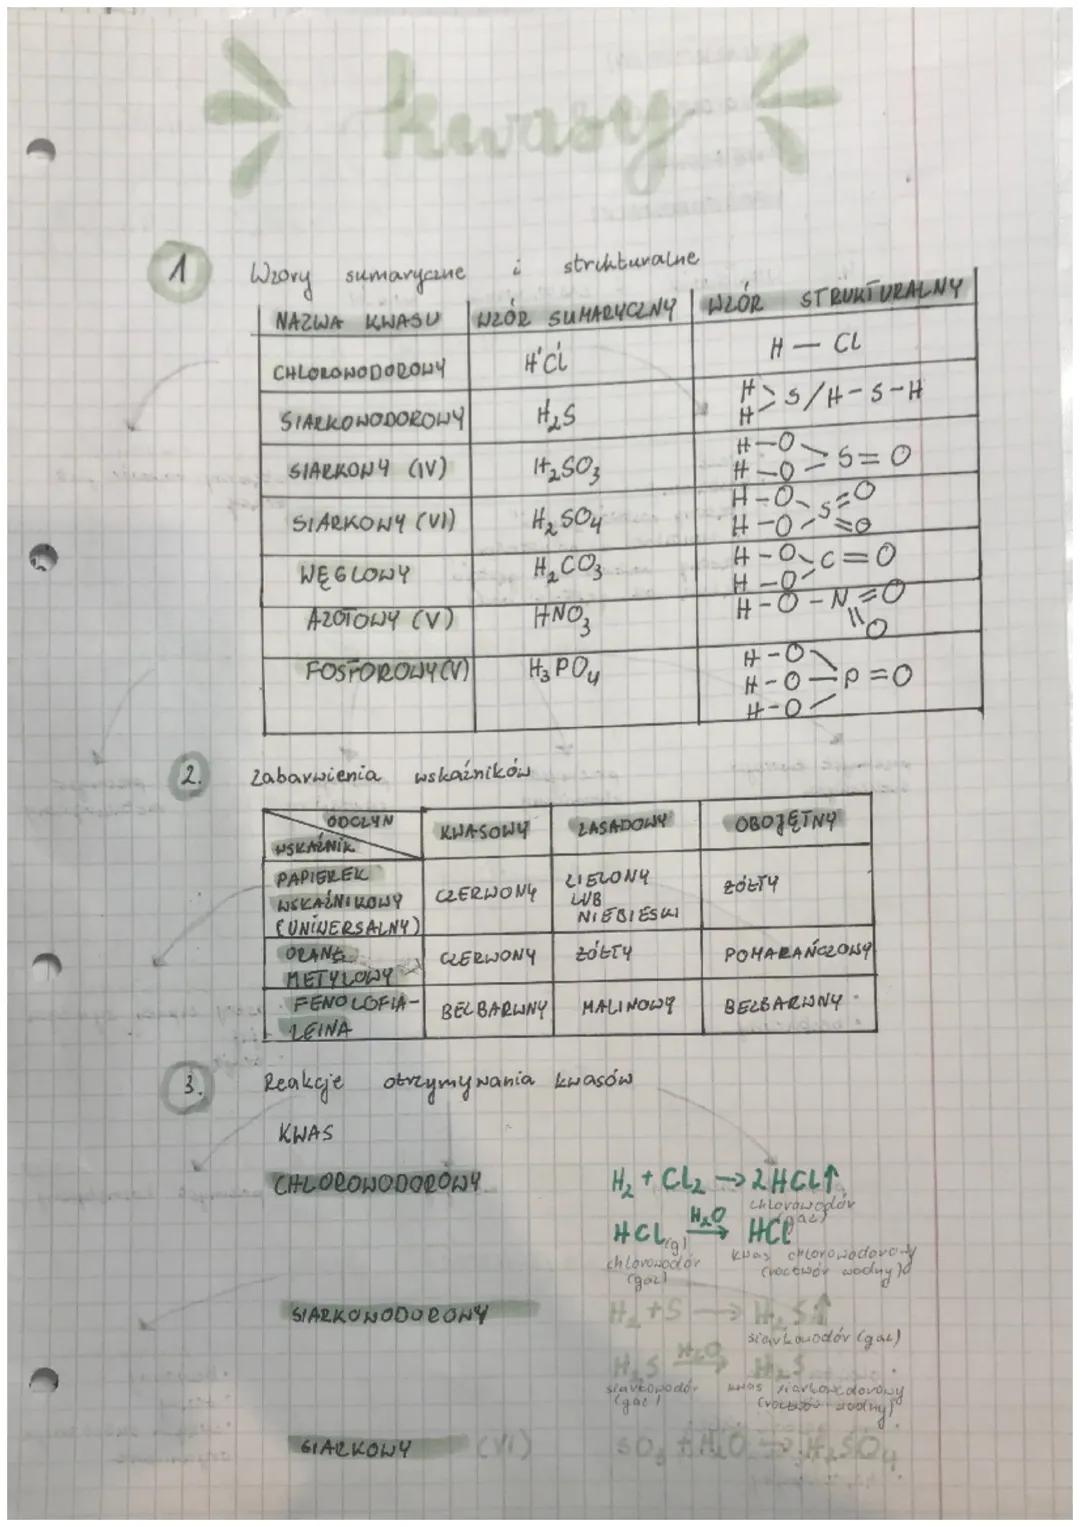 kwasy
1 Wzory sumaryczne i strukturalne
NAZWA KWASU WZÓR SUMARYCZNY WZÓR STRUKTURALNY
CHLOROWODOROWY HCl H — Cl
SIARKOWODOROWY H₂S H H > S / H - S - H
SIARKOWY (IV) H₂SO₃ H-O H-O > S = O
SIARKOWY (VI) H₂SO₄ H-O H-O > S =O =O
WĘGLOWY H₂CO₃ H-O H-O > C = O
AZOTOWY (V) HNO₃ H-O-N =O =O
FOSFOROWY(V) H₃PO₄ H-O H-O H-O > P = O
2. Zabarwienia wskaźników
ODCZYN
WSKAŹNIK KWASOWY ZASADOWY OBOJĘTNY
PAPIEREK
WSKAŹNIKOWY
(UNIWERSALNY) CZERWONY ZIELONY
LUB
NIEBIESKI ŻÓŁTY
ORANŻ
METYLOWY CZERWONY ŻÓŁTY POMARAŃCZOWY
FENOLOFTA-
LEINA BEZBARWNY MALINOWY BEZBARWNY
3. Reakcje otrzymywania kwasów
KWAS
CHLOROWODOROWY H₂ + Cl₂ → 2HCl↑
chlorowodór
(gaz)
HCl(g) H₂O → HCl
chlorowodór
(gaz)
kwas chlorowodorowy
(roztwór wodny)
SIARKOWODOROWY H₂ + S → H₂S↑
siarkowodór (gaz)
H₂S H₂O → H₂S
siarkowodór
(gaz)
kwas siarkowodorowy
(roztwór wodny)
SIARKOWY (VI) SO₃ + H₂O → H₂SO₄